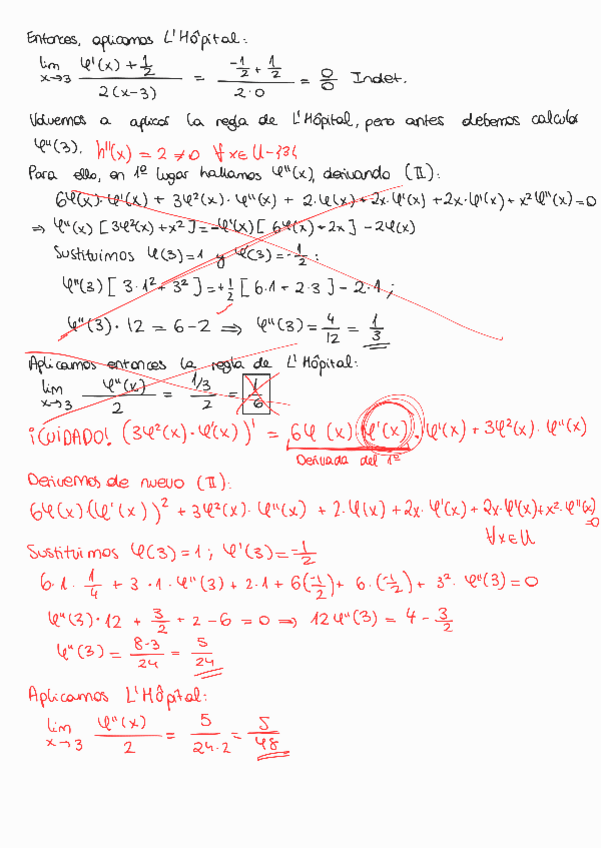 Entonces, aplicamos L'Hôpital:
lim x→3 (φ'(x) + 1/2) / (2(x-3)) = (-1/2 + 1/2) / (2·0) = 0/0 Indet.
Volvemos a aplicar la regla de L'Hôpital, pero antes debemos calcular
φ''(3). h''(x) = 2 ≠ 0 ∀x∈U-{3}
Para ello, en 1º lugar hallamos φ''(x), derivando (II):
6φ(x)·φ'(x) + 3φ²(x)·φ''(x) + 2·φ(x) + 2x·φ'(x) + 2x·φ'(x) + x²φ''(x) = 0
⇒ φ''(x) [3φ²(x) + x²] = -φ'(x) [6φ(x) + 2x] - 2φ(x)
Sustituimos φ(3) = 1 y φ'(3) = -1/2:
φ''(3) [3·1² + 3²] = +1/2 [6·1 + 2·3] - 2·1;
φ''(3)·12 = 6-2 ⇒ φ''(3) = 4/12 = 1/3
Aplicamos entonces la regla de L'Hôpital:
lim x→3 φ''(x)/2 = (1/3)/2 = 1/6
¡CUIDADO! (3φ²(x)·φ'(x))' = 6φ(x)·φ'(x)·φ'(x) + 3φ²(x)·φ''(x)
Derivada del 1º
Derivemos de nuevo (II):
6φ(x)(φ'(x))² + 3φ²(x)·φ''(x) + 2·φ(x) + 2x·φ'(x) + 2x·φ'(x) + x²·φ''(x) = 0
∀x∈U
Sustituimos φ(3) = 1; φ'(3) = -1/2
6·1·1/4 + 3·1·φ''(3) + 2·1 + 6(-1/2) + 6·(-1/2) + 3²·φ''(3) = 0
φ''(3)·12 + 3/2 + 2 - 6 = 0 ⇒ 12φ''(3) = 4 - 3/2
φ''(3) = (8-3)/24 = 5/24
Aplicamos L'Hôpital:
lim x→3 φ''(x)/2 = 5/(24·2) = 5/48